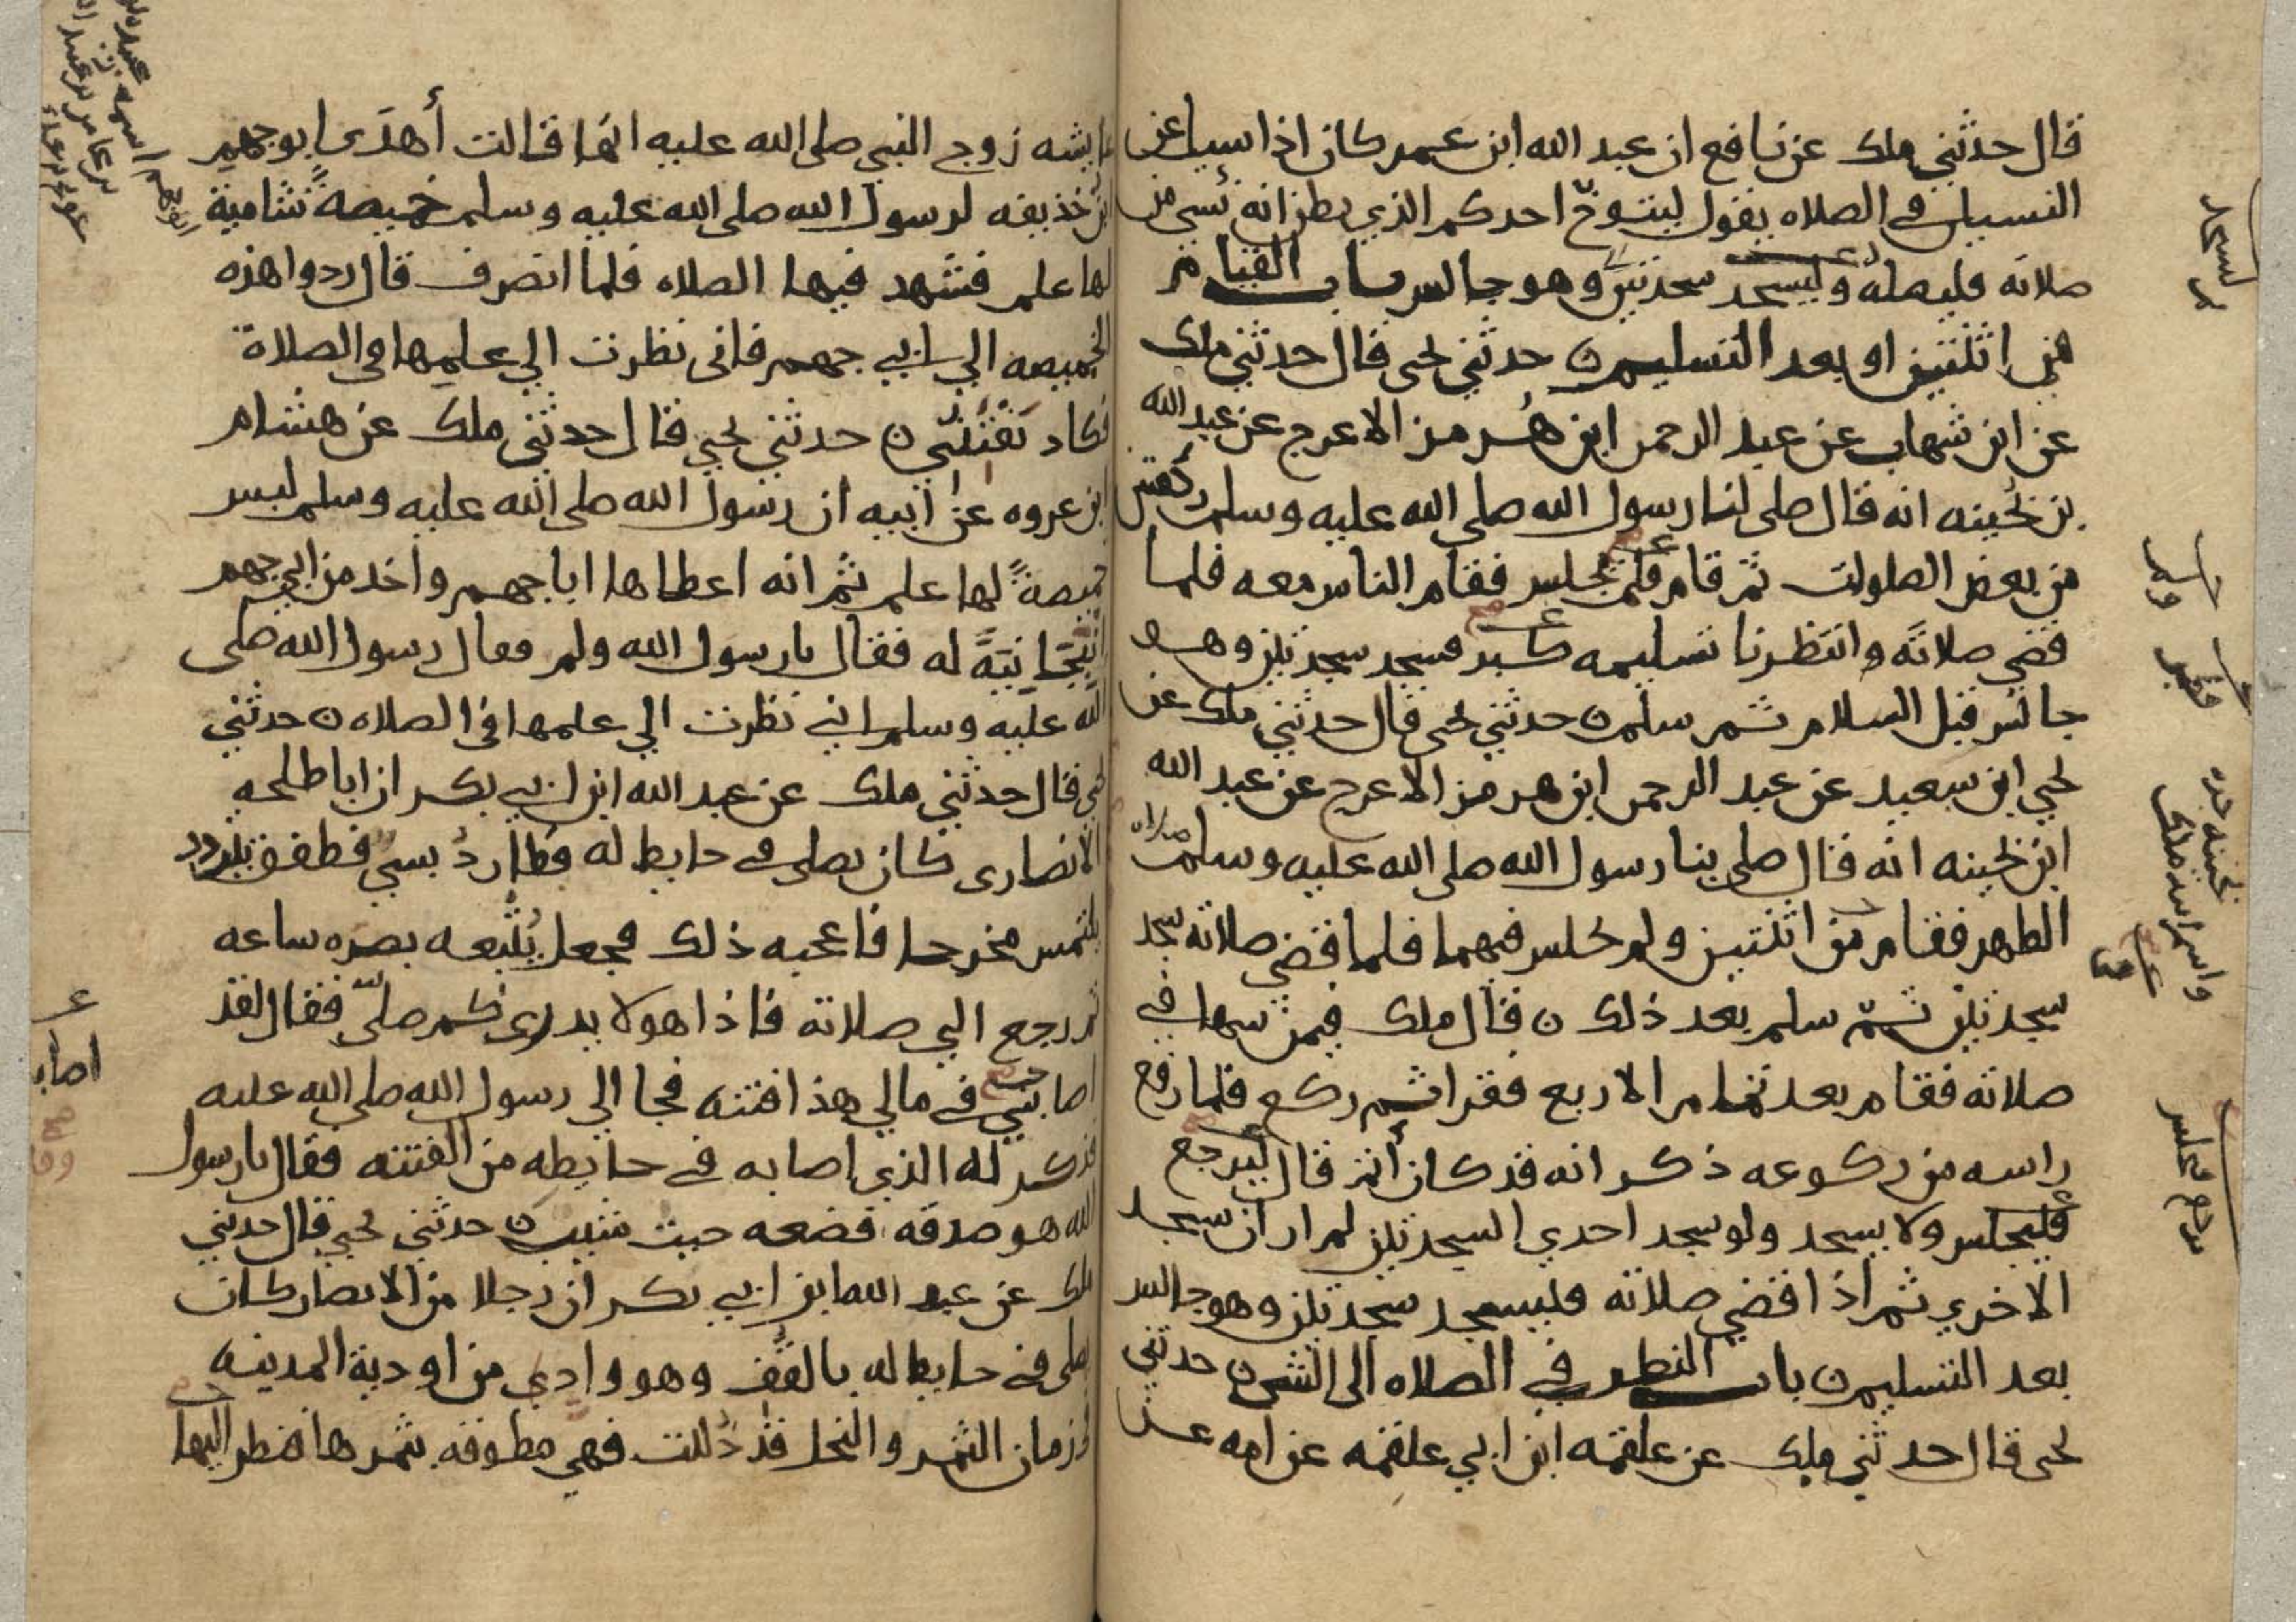 قال حدثني ملك عن نافع ان عبد الله ابن عمر كان اذا سيل عن
النسيان في الصلاه يقول ليتوخ احدكم الذي يظن انه نسي من
صلاته فليصله وليسجد سجدتين وهو جالس باب القيام
من اثنتين او بعد التسليم ن حدثني يحيى قال حدثني ملك
عن ابن شهاب عن عبد الرحمن ابن هرمز الاعرج عن عبد الله
بن بحينه انه قال صلى لنا رسول الله صلى الله عليه وسلم ركعتين
من بعض الصلوات ثم قام فلم يجلس فقام الناس معه فلما
قضى صلاته وانتظرنا تسليمه كبر فسجد سجدتين وهو
جالس قبل السلام ثم سلم ن حدثني يحيى قال حدثني ملك عن
يحيي ابن سعيد عن عبد الرحمن ابن هرمز الاعرج عن عبد الله
ابن بحينه انه قال صلى بنا رسول الله صلى الله عليه وسلم صلاه
الظهر فقام من اثنتين ولم يجلس فيهما فلما قضى صلاته سجد
سجدتين ثم سلم بعد ذلك ن قال ملك فيمن سها في
صلاته فقام بعد تمام الاربع فقرا ثم ركع فلما رفع
راسه من ركوعه ذكر انه قد كان أتم قال ليرجع
فليجلس ولا يسجد ولو سجد احدي السجدتين لم ار ان يسجد
الاخري ثم اذا قضى صلاته فليسجد سجدتين وهو جالس
بعد التسليم ن باب النظر في الصلاه الى الشي ن حدثني
يحيى قال حدثني ملك عن علقمه ابن ابي علقمه عن امه عن
بحينه جده
وليسجد
فليجلس
عايشه زوج النبي صلى الله عليه انها قالت أهدى ابو جهم
ابن حذيفه لرسول الله صلى الله عليه وسلم خميصةً شامية
لها علم فشهد فيها الصلاه فلما انصرف قال ردوا هذه
الخميصه الي ابي جهم فاني نظرت الي علمها في الصلاة
فكاد يفتنني ن حدثني يحيي قال حدثني ملك عن هشام
ابن عروه عن ابيه ان رسول الله صلى الله عليه وسلم لبس
خميصةً لها علم ثم انه اعطاها ابا جهم واخد من ابي جهم
انبجانيةً له فقال يا رسول الله ولم فقال رسول الله صلى
الله عليه وسلم اني نظرت الي علمها في الصلاه ن حدثني
يحيي قال حدثني ملك عن عبد الله ابن ابي بكر ان ابا طلحه
الانصارى كان يصلى في حايط له فطار دُبسيٌ فطفق يتردد
يلتمس مخرجا فاعجبه ذلك فجعل يُتْبعه بصره ساعه
ثم رجع الي صلاته فاذا هو لا يدرى كم صلى فقال لقد
اصابتني في مالي هذا فتنه فجا الي رسول الله صلى الله عليه
فذكر له الذي اصابه في حايطه من الفتنه فقال يا رسول
الله هو صدقه فضعه حيث شيت ن حدثني يحيي قال حدثني
ملك عن عبد الله ابن ابي بكر ان رجلا من الانصار كان
يصلى في حايط له بالقف وهو وادي من اودية المدينه
في زمان الثمر والنخل قد ذُللت فهي مطوقه بثمرها فنظر اليها
ابو جهم اسمه